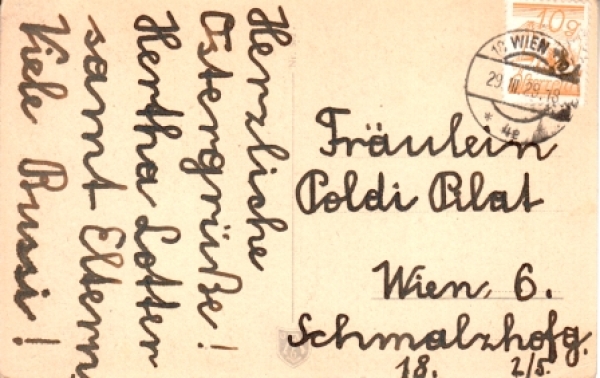 Herzliche
Ostergrüße!
Hertha Lotter
samt Eltern
Viele Bussi!
10g
WIEN
29.III.29.18
* 4e
Fräulein
Poldi Pilat
Wien, 6.
Schmalzhofg.
18. 2/5.